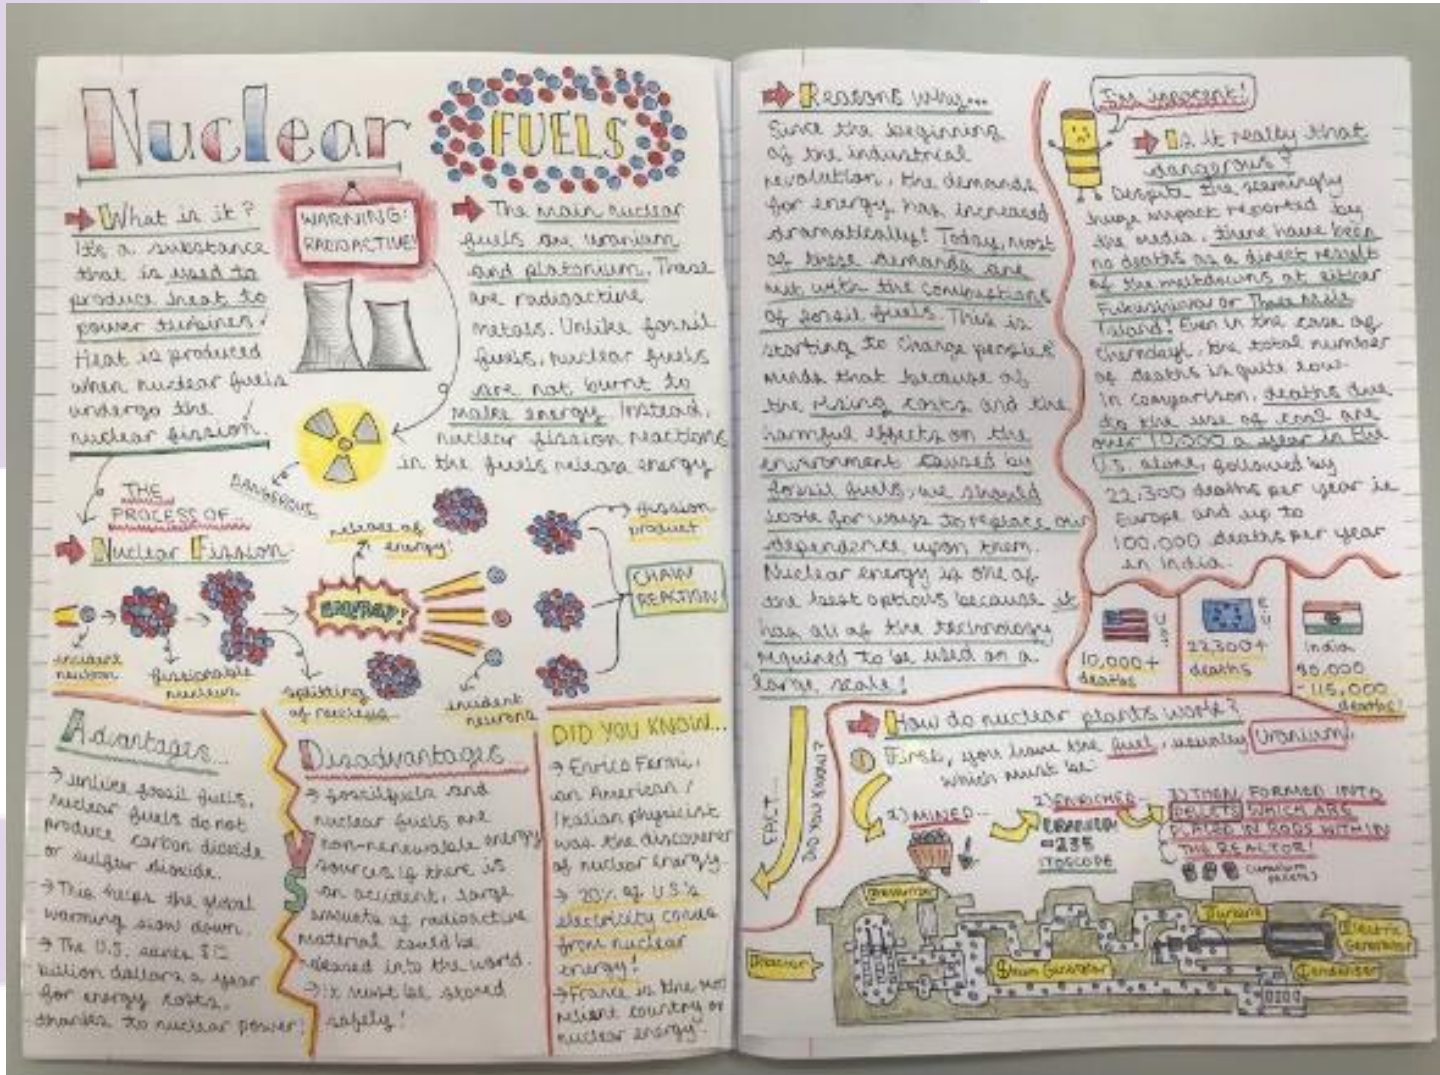 Nuclear
FUELS
What is it?
It's a substance
that is used to
produce heat to
power turbines!
Heat is produced
when nuclear fuels
undergo the
nuclear fission.
WARNING:
RADIOACTIVE!
DANGEROUS
The main nuclear
fuels are uranium
and platonium. These
are radioactive
metals. Unlike fossil
fuels, nuclear fuels
are not burnt to
make energy. Instead,
nuclear fission reactions
in the fuels release energy
THE
PROCESS OF...
Nuclear Fission:
incident
neutron
fissionable
nucleus
splitting
of nucleus
release of
energy!
ENERGY!
incident
neurons
fission
product
CHAIN
REACTION
Advantages...
→ unlike fossil fuels,
nuclear fuels do not
produce carbon dioxide
or sulfur dioxide.
→ This helps the global
warming slow down.
→ The U.S. saves
billion dollars a year
for energy costs,
thanks to nuclear power!
VS
Disadvantages...
→ fossil fuels and
nuclear fuels are
non-renewable energy
sources if there is
an accident, large
amounts of radioactive
material could be
into the world.
→ it must be stored
safely!
DID YOU KNOW...
→ Enrico Fermi,
an American/
Italian physicist
was the discoverer
of nuclear energy.
→ 20% of U.S.'s
electricity comes
from nuclear
energy!
→ France is the most
reliant country on
nuclear energy.
Reasons why...
Since the beginning
of the industrial
revolution, the demands
for energy has increased
dramatically! Today, most
of these demands are
met with the combustions
of fossil fuels. This is
starting to change peoples'
minds that because of
the rising costs and the
harmful effects on the
environment caused by
fossil fuels, we should
look for ways to replace our
dependence upon them.
Nuclear energy is one of
the best options because it
has all of the technology
required to be used on a
large scale!
FACT...
DID YOU KNOW?
I'm innocent!
Is it really that
dangerous?
Despite the seemingly
huge impact reported by
the media, there have been
no deaths as a direct result
of the meltdowns at either
or Three Mile
Island! Even in the case of
the total number
of deaths is quite low.
In comparison, deaths due
to the use of coal are
over 10,000 a year in the
U.S. alone, followed by
22,300 deaths per year in
Europe and up to
100,000 deaths per year
in India.
10,000+
deaths
E.U.
22,300+
deaths
India
-115,000
deaths!
How do nuclear plants work?
① First, you have the fuel, usually Uranium,
which must be:
1) MINED...
2) ENRICHED...
-235
3) THEN FORMED INTO
PALETS WHICH ARE
PLACED IN RODS WITHIN
THE REACTOR!
Reactor
Steam Generator
Turbine
Electric
Generator
Condenser